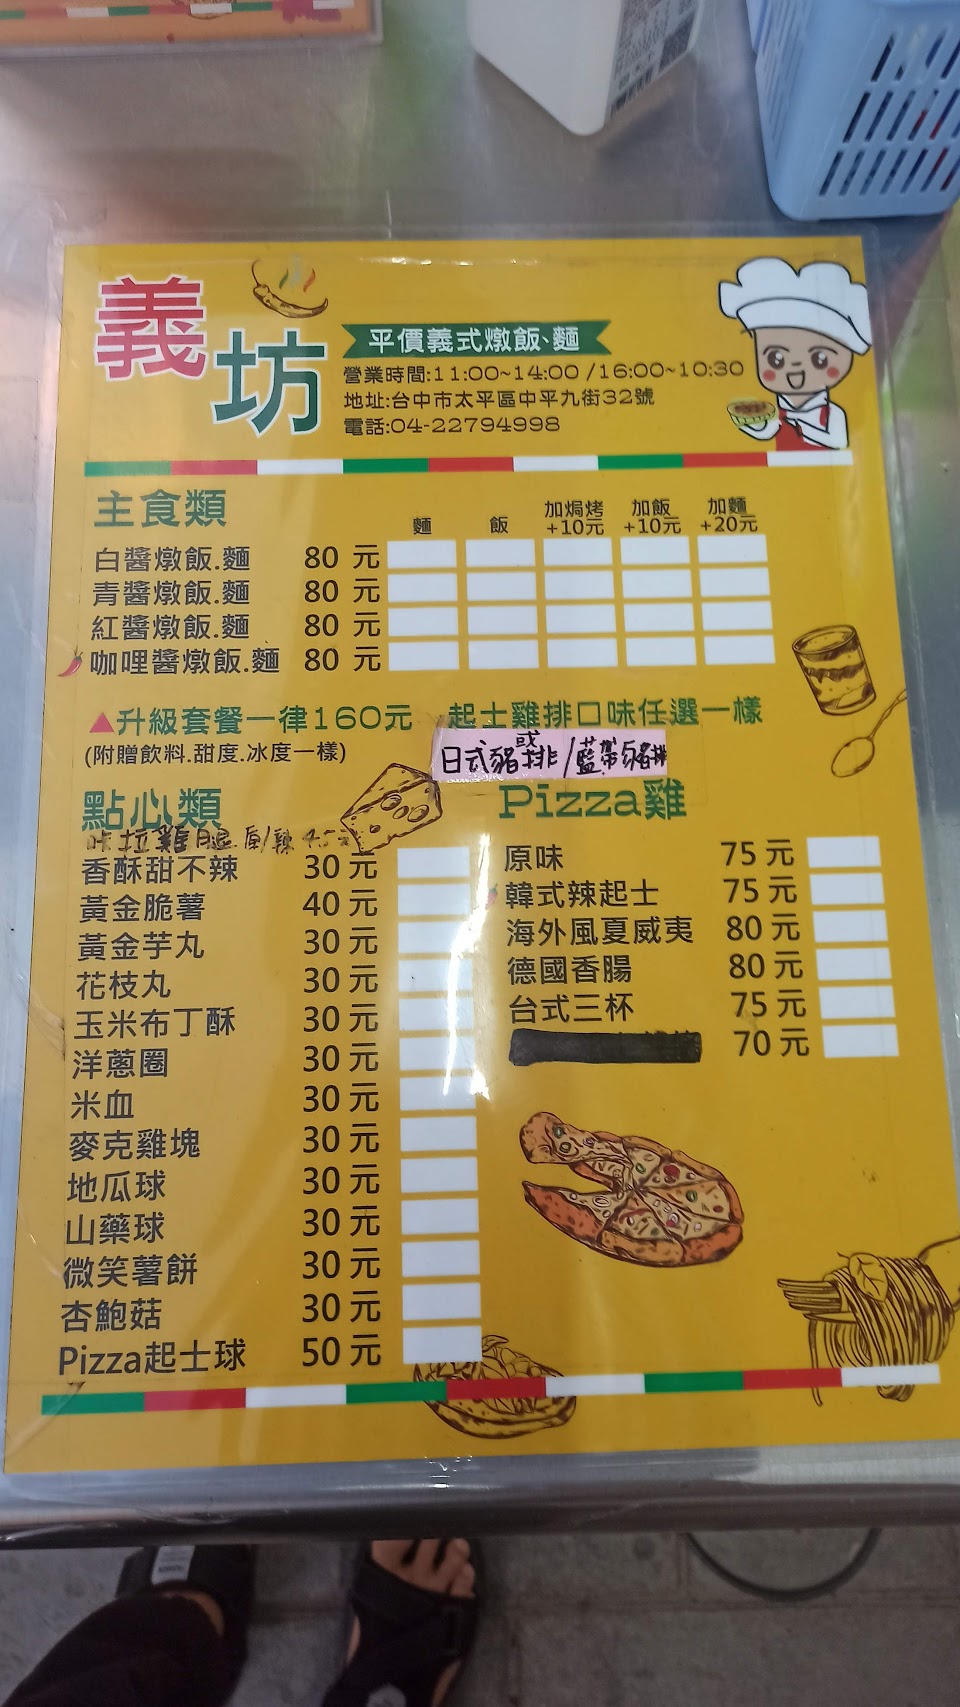 義坊
平價義式燉飯、麵
營業時間:11:00~14:00 /16:00~10:30
地址:台中市太平區中平九街32號
電話:04-22794998
主食類 麵 飯 加焗烤+10元 加飯+10元 加麵+20元
白醬燉飯.麵 80 元
青醬燉飯.麵 80 元
紅醬燉飯.麵 80 元
咖哩醬燉飯.麵 80 元
▲升級套餐一律160元 起士雞排口味任選一樣
(附贈飲料.甜度.冰度一樣)
或
日式豬排/藍帶豬排
點心類
咔拉雞腿 原/辣 45元
香酥甜不辣 30 元
黃金脆薯 40 元
黃金芋丸 30 元
花枝丸 30 元
玉米布丁酥 30 元
洋蔥圈 30 元
米血 30 元
麥克雞塊 30 元
地瓜球 30 元
山藥球 30 元
微笑薯餅 30 元
杏鮑菇 30 元
Pizza起士球 50 元
Pizza雞
原味 75 元
韓式辣起士 75 元
海外風夏威夷 80 元
德國香腸 80 元
台式三杯 75 元
70 元